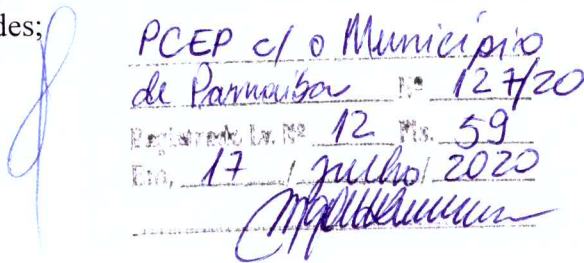 des;
PCEP c/ o Município
de Parnaíba Nº 127/20
Registrado Lv. Nº 12 Fls. 59
Em, 17 / julho / 2020